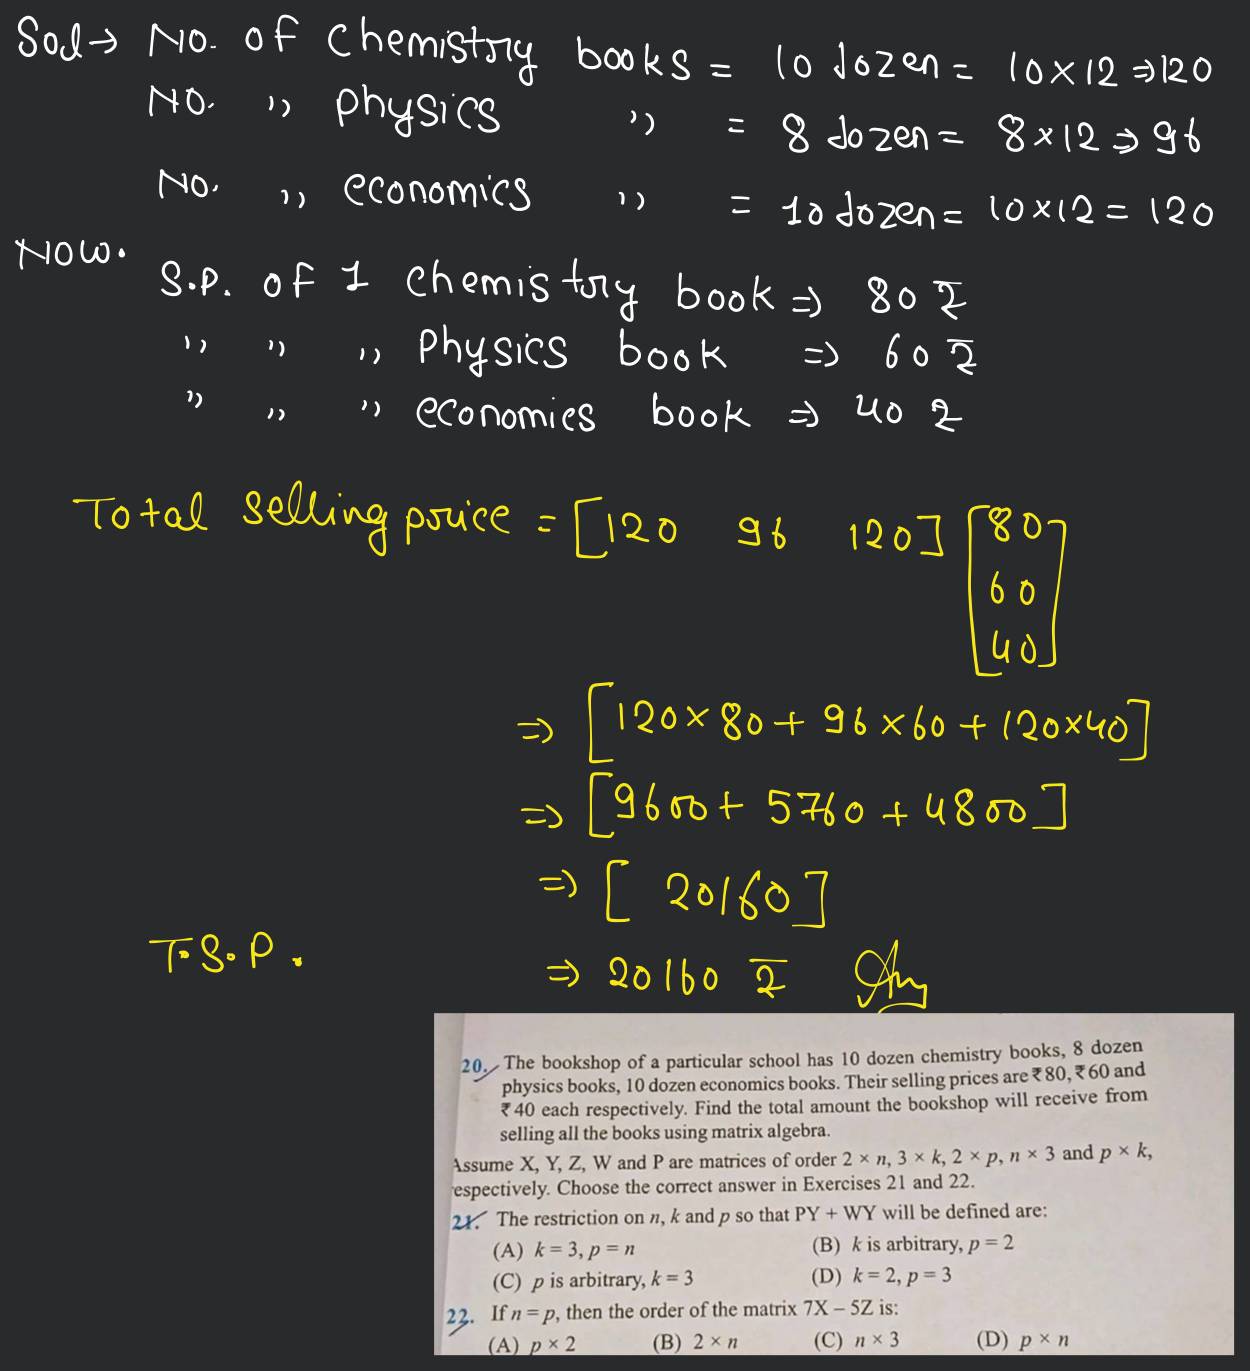 Sol → No. of chemistry books = 10 dozen = 10×12 ⇒ 120
No. ,, physics ,, = 8 dozen = 8×12 ⇒ 96
No. ,, economics ,, = 10 dozen = 10×12 = 120
Now.
S.P. of 1 chemistry book ⇒ 80 ₹
,, ,, ,, Physics book ⇒ 60 ₹
,, ,, ,, economics book ⇒ 40 ₹
Total selling price = [120 96 120] [80
60
40]
⇒ [120×80 + 96×60 + 120×40]
⇒ [9600 + 5760 + 4800]
⇒ [ 20160 ]
T.S.P. ⇒ 20160 ₹ Ans
20. The bookshop of a particular school has 10 dozen chemistry books, 8 dozen
physics books, 10 dozen economics books. Their selling prices are ₹ 80, ₹ 60 and
₹ 40 each respectively. Find the total amount the bookshop will receive from
selling all the books using matrix algebra.
Assume X, Y, Z, W and P are matrices of order 2 × n, 3 × k, 2 × p, n × 3 and p × k,
respectively. Choose the correct answer in Exercises 21 and 22.
21. The restriction on n, k and p so that PY + WY will be defined are:
(A) k = 3, p = n (B) k is arbitrary, p = 2
(C) p is arbitrary, k = 3 (D) k = 2, p = 3
22. If n = p, then the order of the matrix 7X – 5Z is:
(A) p × 2 (B) 2 × n (C) n × 3 (D) p × n